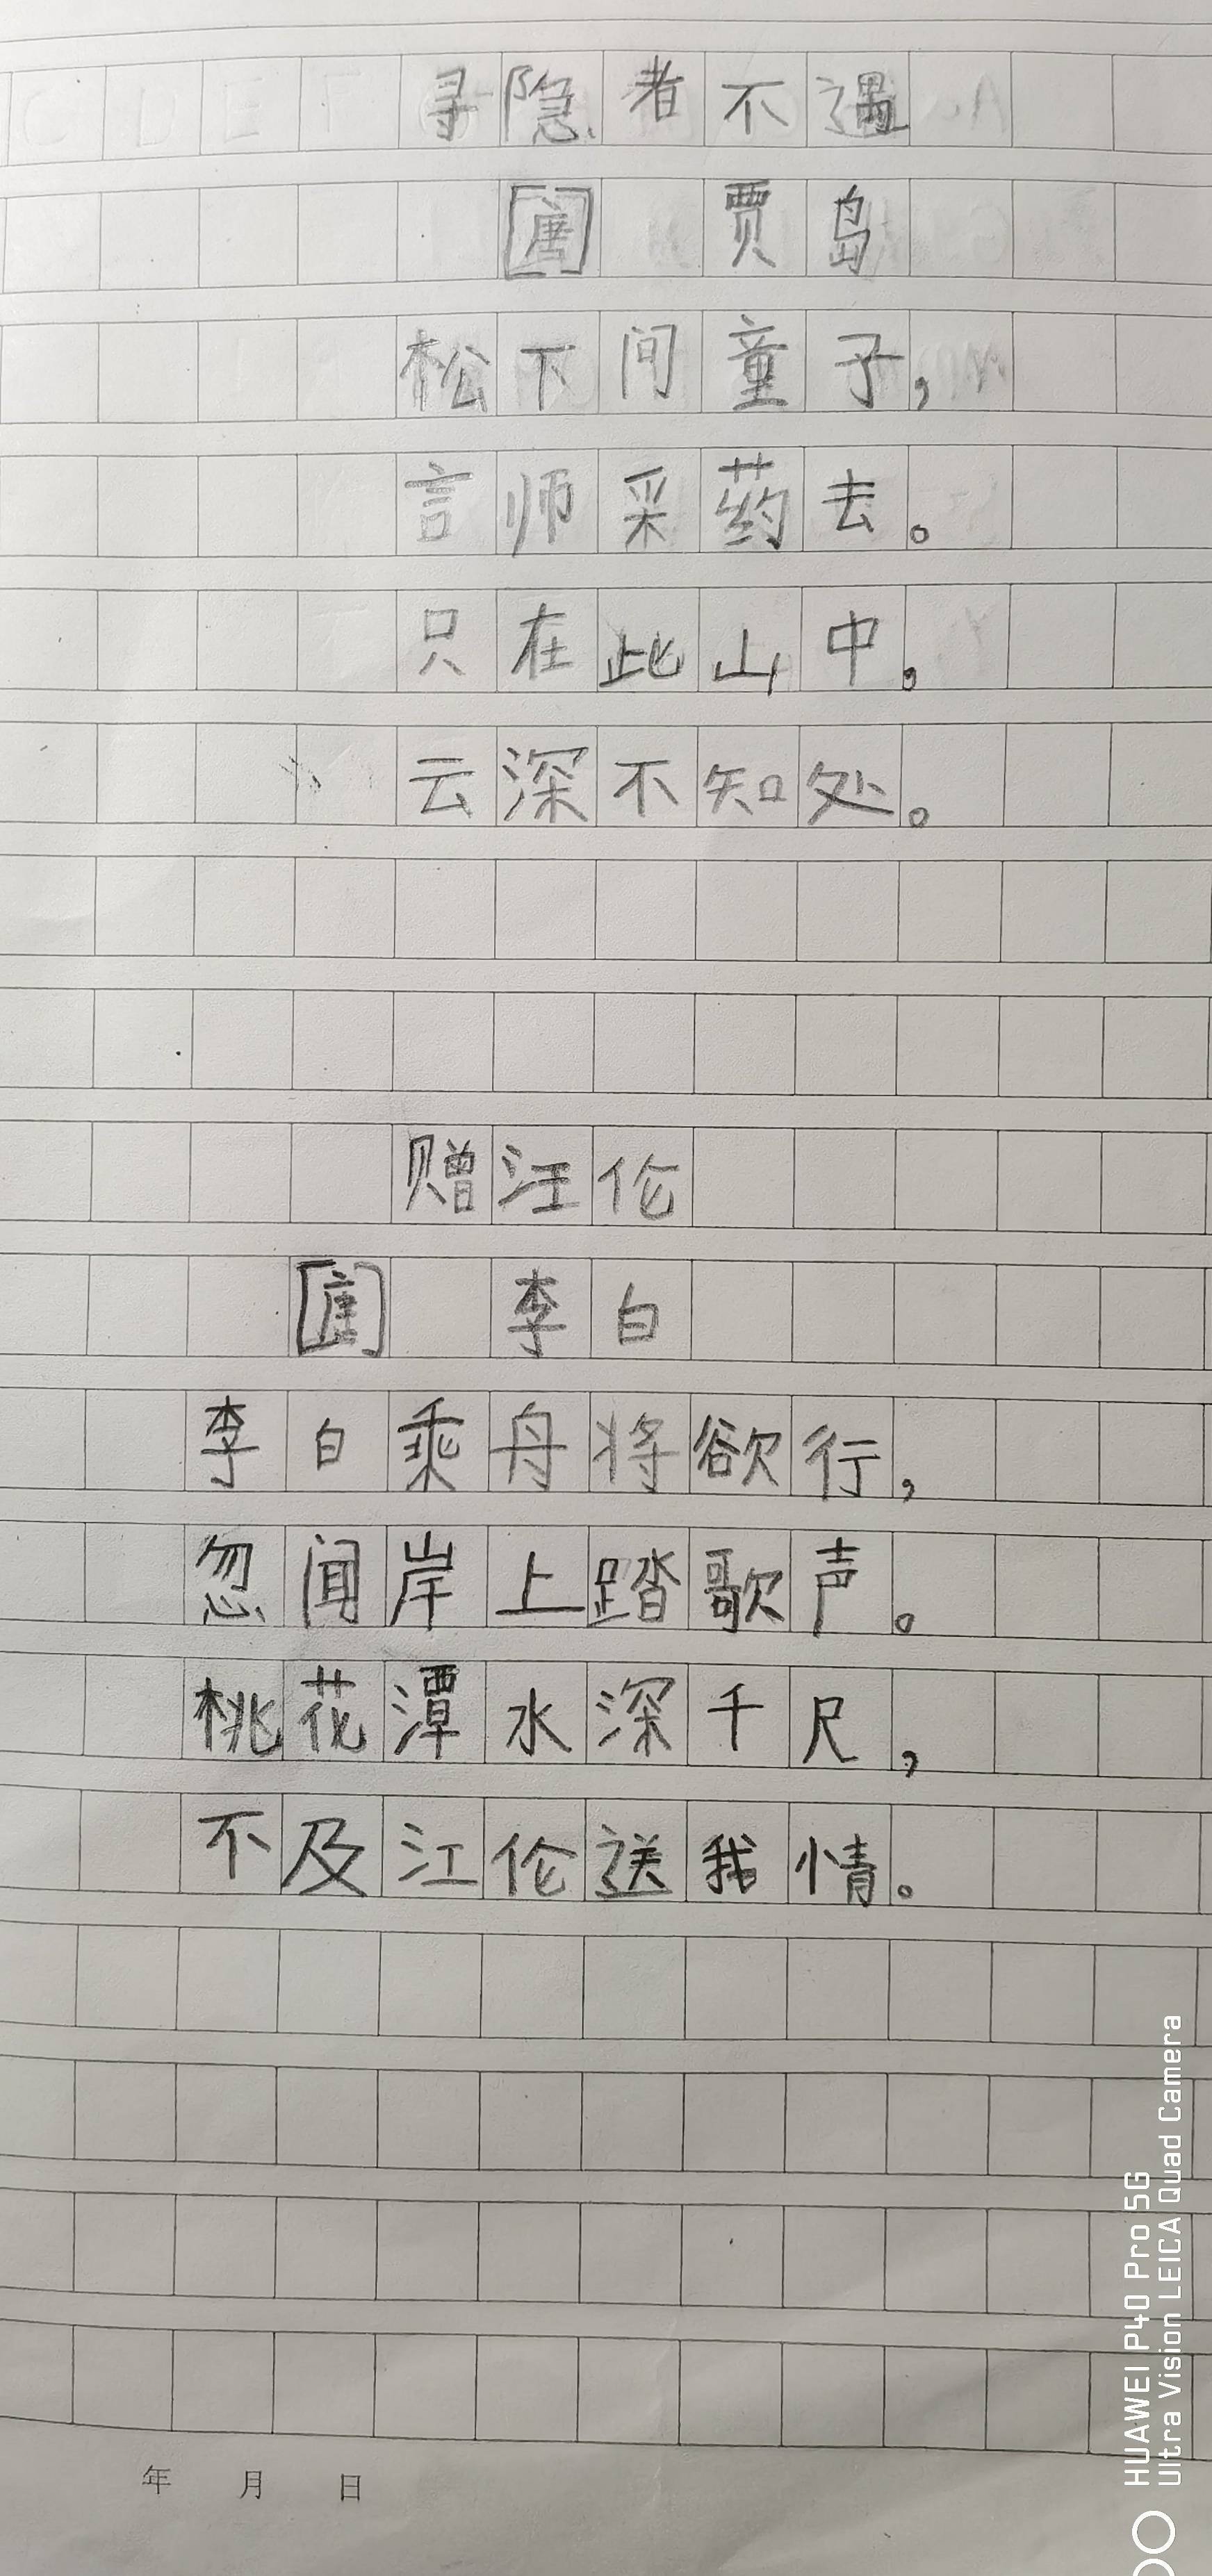 寻隐者不遇
[唐] 贾岛
松下问童子，
言师采药去。
只在此山中，
云深不知处。
赠汪伦
[唐] 李白
李白乘舟将欲行，
忽闻岸上踏歌声。
桃花潭水深千尺，
不及江伦送我情。
年 月 日
HUAWEI P40 Pro 5G
Ultra Vision LEICA Quad Camera